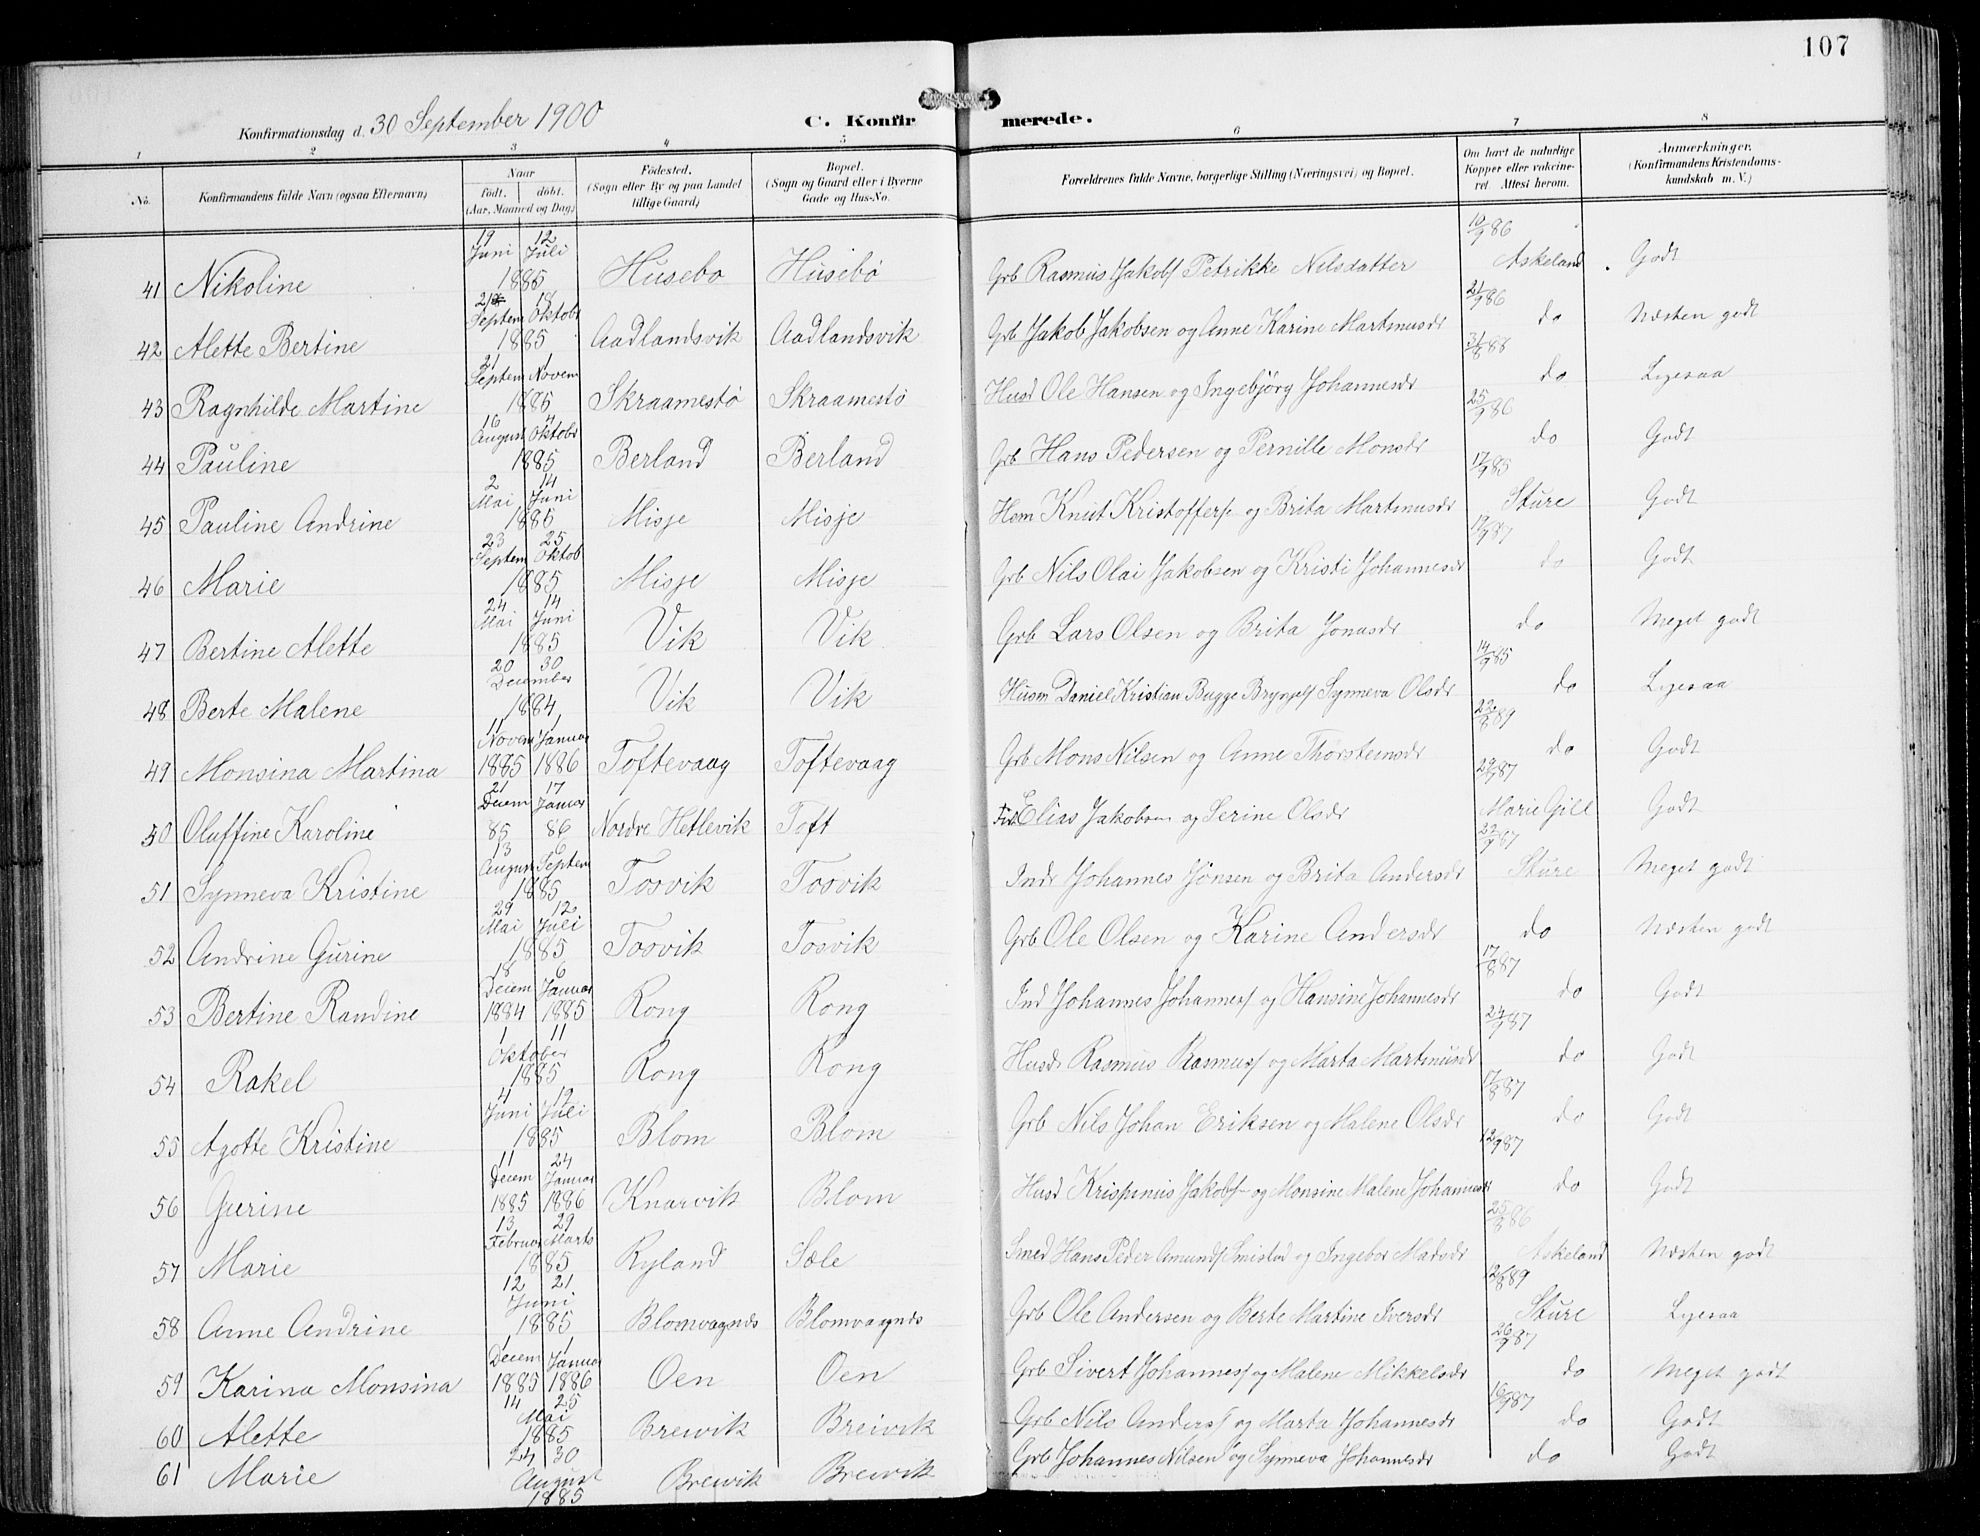 107
Konfirmationsdag d. 30 September 1900 C. Konfirmerede.
1 2 3 4 5 6 7 8
No. Konfirmandens fulde Navn (ogsaa Efternavn) Naar født. døbt. (Aar, Maaned og Dag.) Fødested. (Sogn eller By og paa Landet tillige Gaard) Bopæl. (Sogn og Gaard eller i Byerne Gade og Hus-No. Forældrenes fulde Navne, borgerlige Stilling (Næringsvei) og Bopæl. Om havt de naturlige Kopper eller vakcineret. Attest herom. Anmærkninger. (Konfirmandens Kristendomskundskab m. V.)
41 Nikoline 19 Juni 12 Juli 1885 Husebø Husebø Grb Rasmus Jakobs Petrikke Nilsdatter 10/9 86 Askeland Godt
42 Alette Bertine Septem 18 Oktobr 1885 Aadlandsvik Aadlandsvik Grb Jakob Jakobsen og Anne Karine Martinusdr 21/9 86 do Næsten godt
43 Ragnhilde Martine 21 Septem 1 Novem 1885 Skraamestø Skraamestø Husd Ole Hansen og Ingebjörg Johannesdr 31/8 88 do Lyesaa
44 Pauline 16 August 4 Oktobr 1885 Berland Berland Grb Hans Pedersen og Pernille Monsdr 25/9 86 do Godt
45 Pauline Andrine 2 Mai 14 Juni 1885 Misje Misje Hom Knut Kristoffers og Brita Martinusdr 17/9 85 Sture Godt
46 Marie 23 Septem 25 Oktob 1885 Misje Misje Grb Nils Olai Jakobsen og Kristi Johannesdr 19/9 87 do Godt
47 Bertine Alette 24 Mai 14 Juni 1885 Vik Vik Grb Lars Olsen og Brita Jonasdr do Meget godt
48 Berte Malene 20 30 December 1884 Vik Vik Husm Daniel Kristian Bugge Brynjels Synneva Olsdr 14/9 85 do Lyesaa
49 Monsina Martina 11 Novem 1885 1 Januar 1886 Toftevaag Toftevaag Grb Mons Nilsen og Anne Thorsteinsdr 22/8 89 do Godt
50 Oluffine Karoline 21 Decem 85 17 Januar 86 Nordre Hetlevik Toft Fisk Elias Jakobsen og Serine Olsdr 29/9 87 Marie Gill Godt
51 Synneva Kristine 13 August 6 Septem 1885 Tosvik Tosvik Indr Johannes Jönsen og Brita Andersdr 22/9 87 Sture Meget godt
52 Andrine Gurine 29 Mai 12 Juli 1885 Tosvik Tosvik Grb Ole Olsen og Karine Andersdr do Næsten godt
53 Bertine Randine 18 Decem 1884 6 Januar 1885 Rong Rong Ind Johannes Johanness og Hansine Johannesdr 17/8 87 do Godt
54 Rakel 1 11 Oktober 1885 Rong Rong Husdr Rasmus Rasmuss og Marta Martinusdr 24/9 87 do Godt
55 Agotte Kristine 4 Juni 12 Juli 1885 Blom Blom Grb Nils Johan Eriksen og Malene Olsdr 17/8 87 do Godt
56 Gurine 11 Decem 1885 24 Januar 1886 Knarvik Blom Husd Krispinus Jakobs og Monsine Malene Johannesdr 12/9 87 do Godt
57 Marie 13 Februar 29 Marts 1885 Ryland Sæle Smed Hans Peder Amunds Smistad og Ingebor Madsdr 25/8 86 Askeland Næsten godt
58 Anne Andrine 12 21 Juni 1885 Blomvagnæs Blomvagnæs Grb Ole Andersen og Berte Martine Iversdr 12/8 89 Sture Lyesaa
59 Karina Monsina 1 Decem 1885 1 Januar 1886 Oen Oen Grb Sivert Johanness og Malene Mikkelsdr 26/9 87 do Meget godt
60 Alette 14 25 Mai 1885 Breivik Breivik Grb Nils Anders og Marta Johannesdr 16/9 87 do Godt
61 Marie 24 30 August 1885 Breivik Breivik Grb Johannes Nilsen og Synneva Johannesdr do Godt